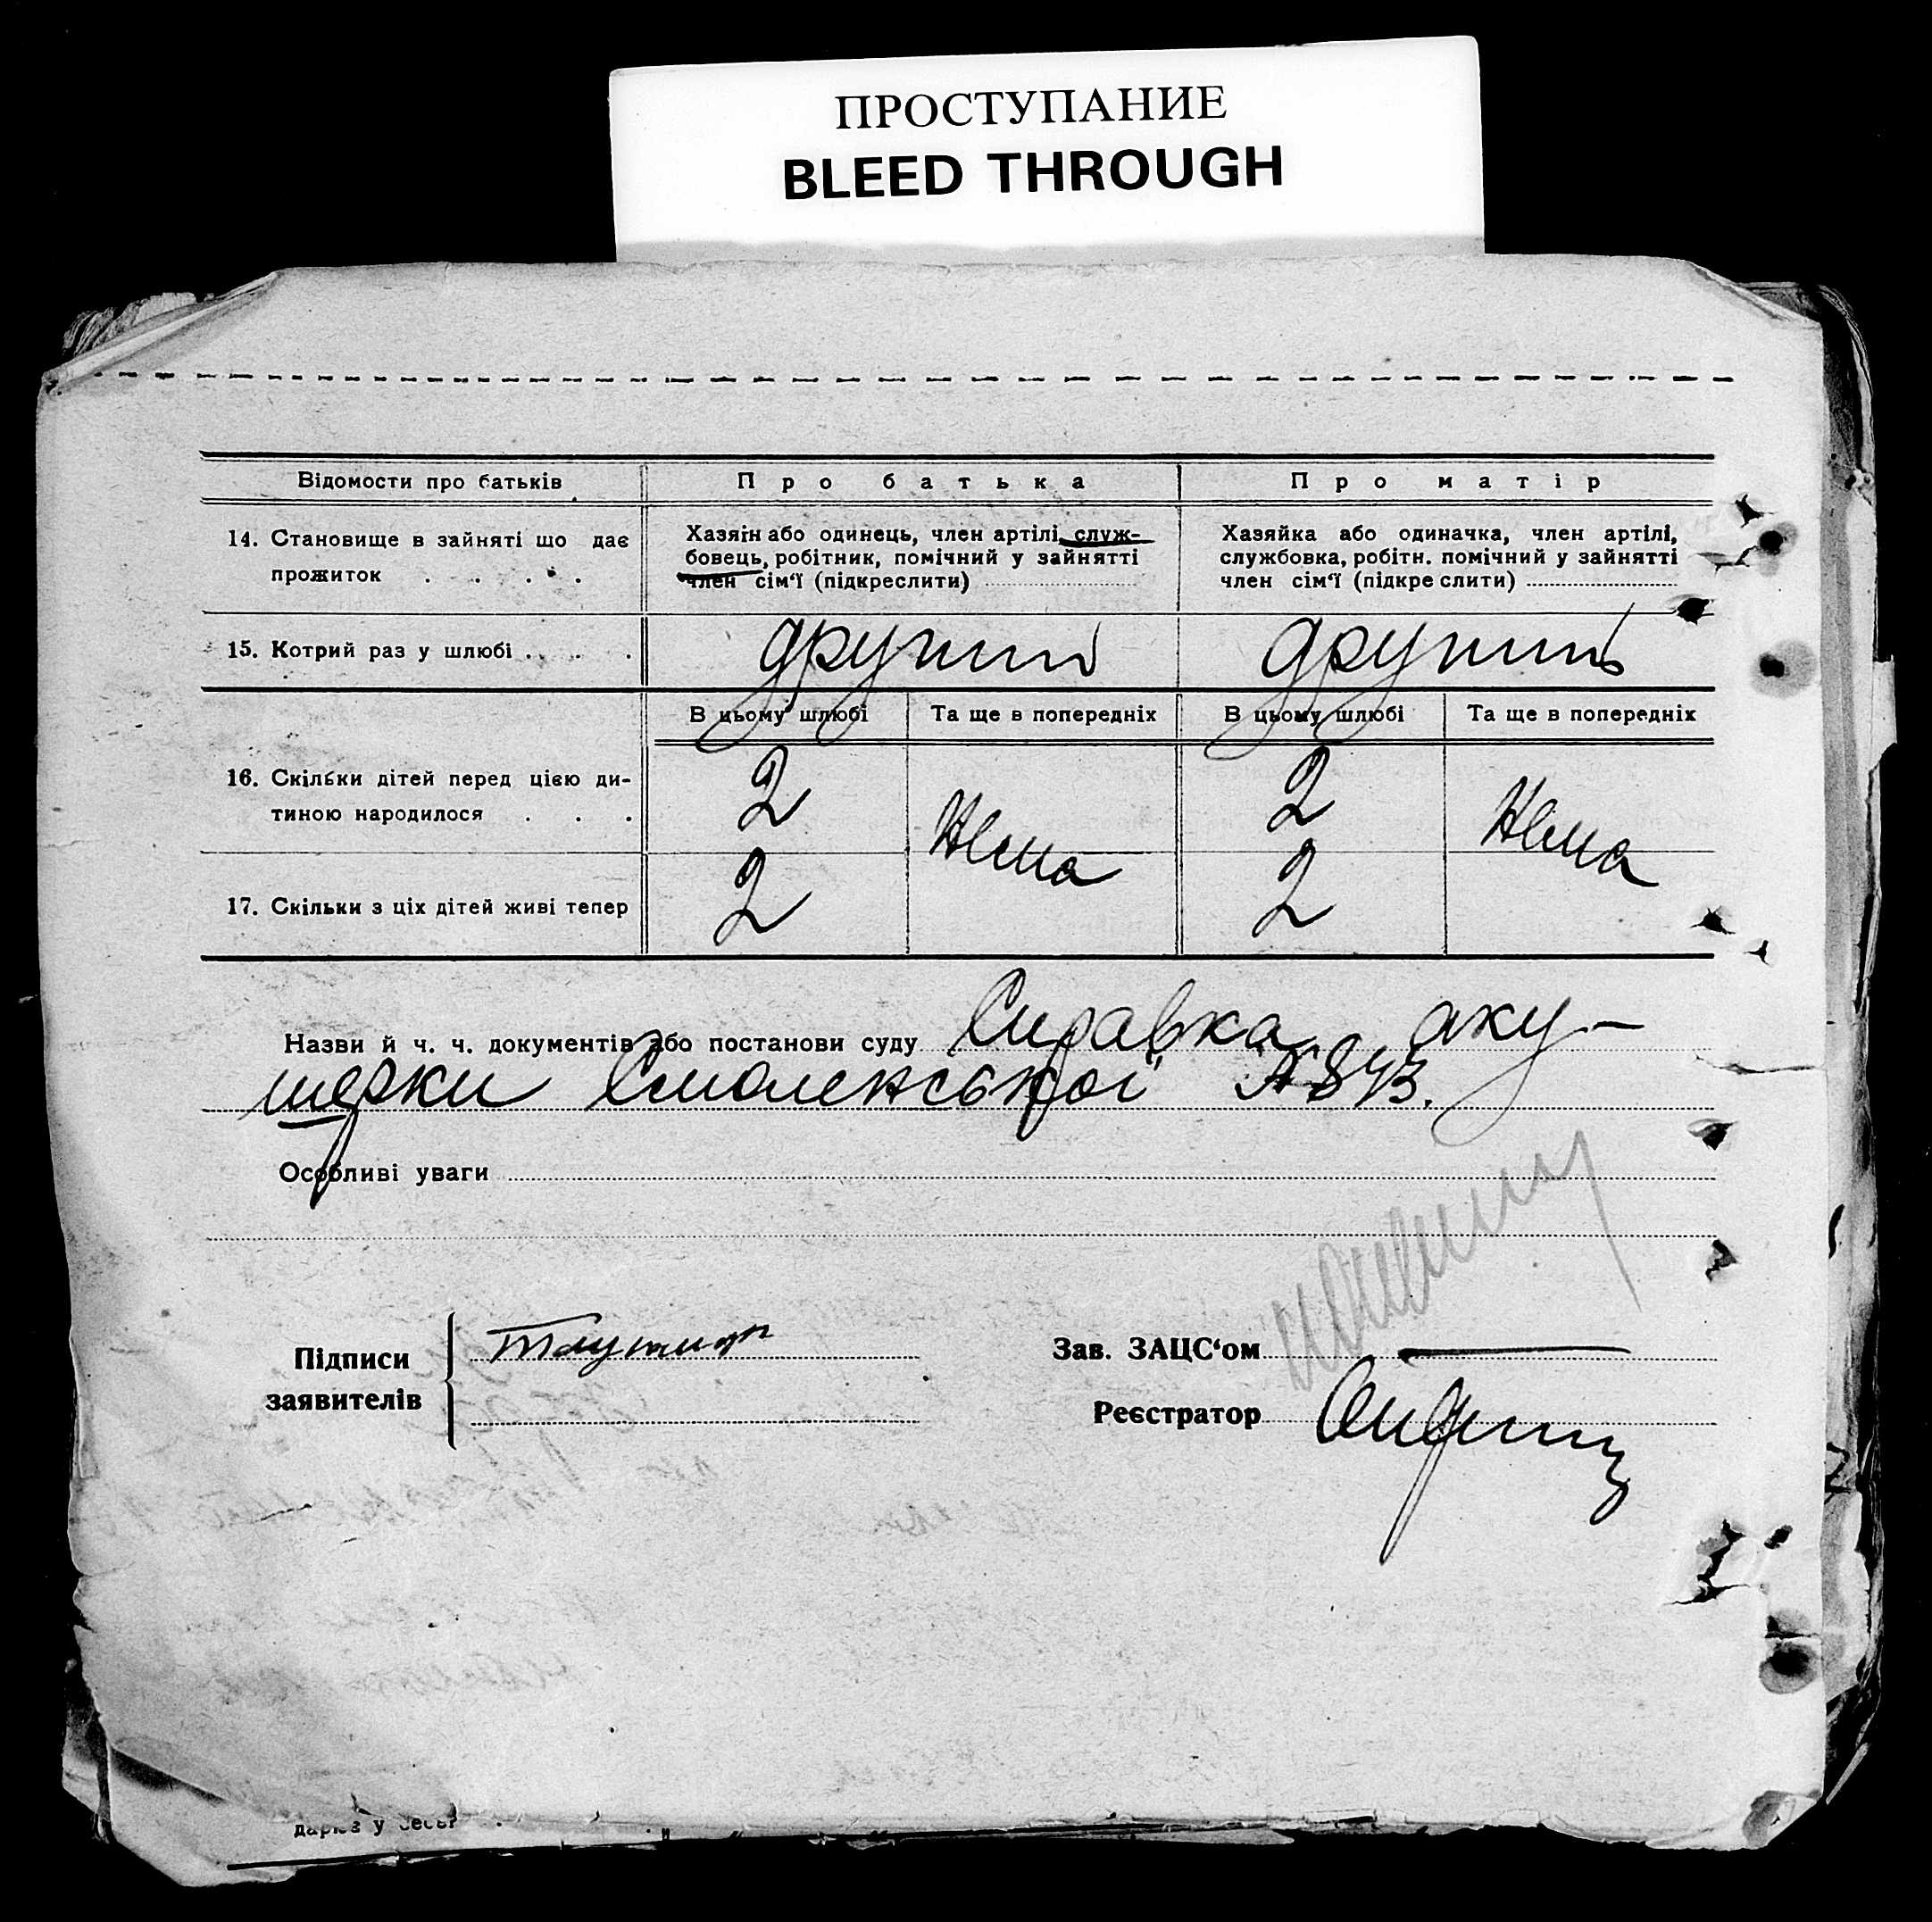 ПРОСТУПАНИЕ
BLEED THROUGH
Відомости про батьків
Про батька
Про матір
14. Становище в зайняті що дає
прожиток . . . .
Хазяїн або одинець, член артілі, служ-
бовець, робітник, помічний у зайнятті
член сім'ї (підкреслити)
Хазяйка або одиначка, член артілі,
службовка, робітн. помічний у зайнятті
член сім'ї (підкреслити)
15. Котрий раз у шлюбі . . . .
другий
другий
В цьому шлюбі
Та ще в попередніх
В цьому шлюбі
Та ще в попередніх
16. Скільки дітей перед цією ди-
тиною народилося . . .
2
Нема
2
Нема
17. Скільки з ціх дітей живі тепер
2
2
Назви й ч. ч. документів або постанови суду Справка аку-
шерки Смоленської
Особливі уваги
Підписи
заявителів
Зав. ЗАЦС'ом
Реєстратор